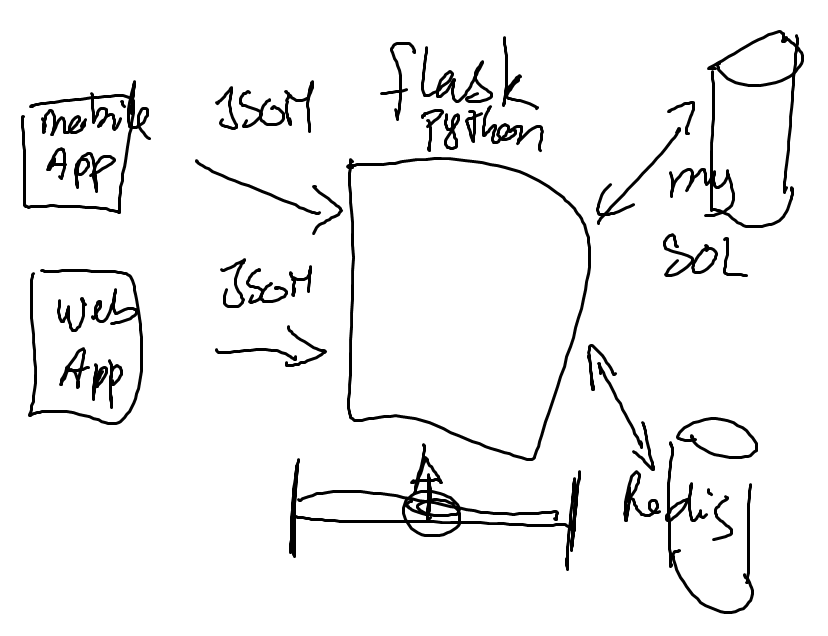 mobile
App
JSON
flask
Python
my
SQL
Web
App
JSON
Redis